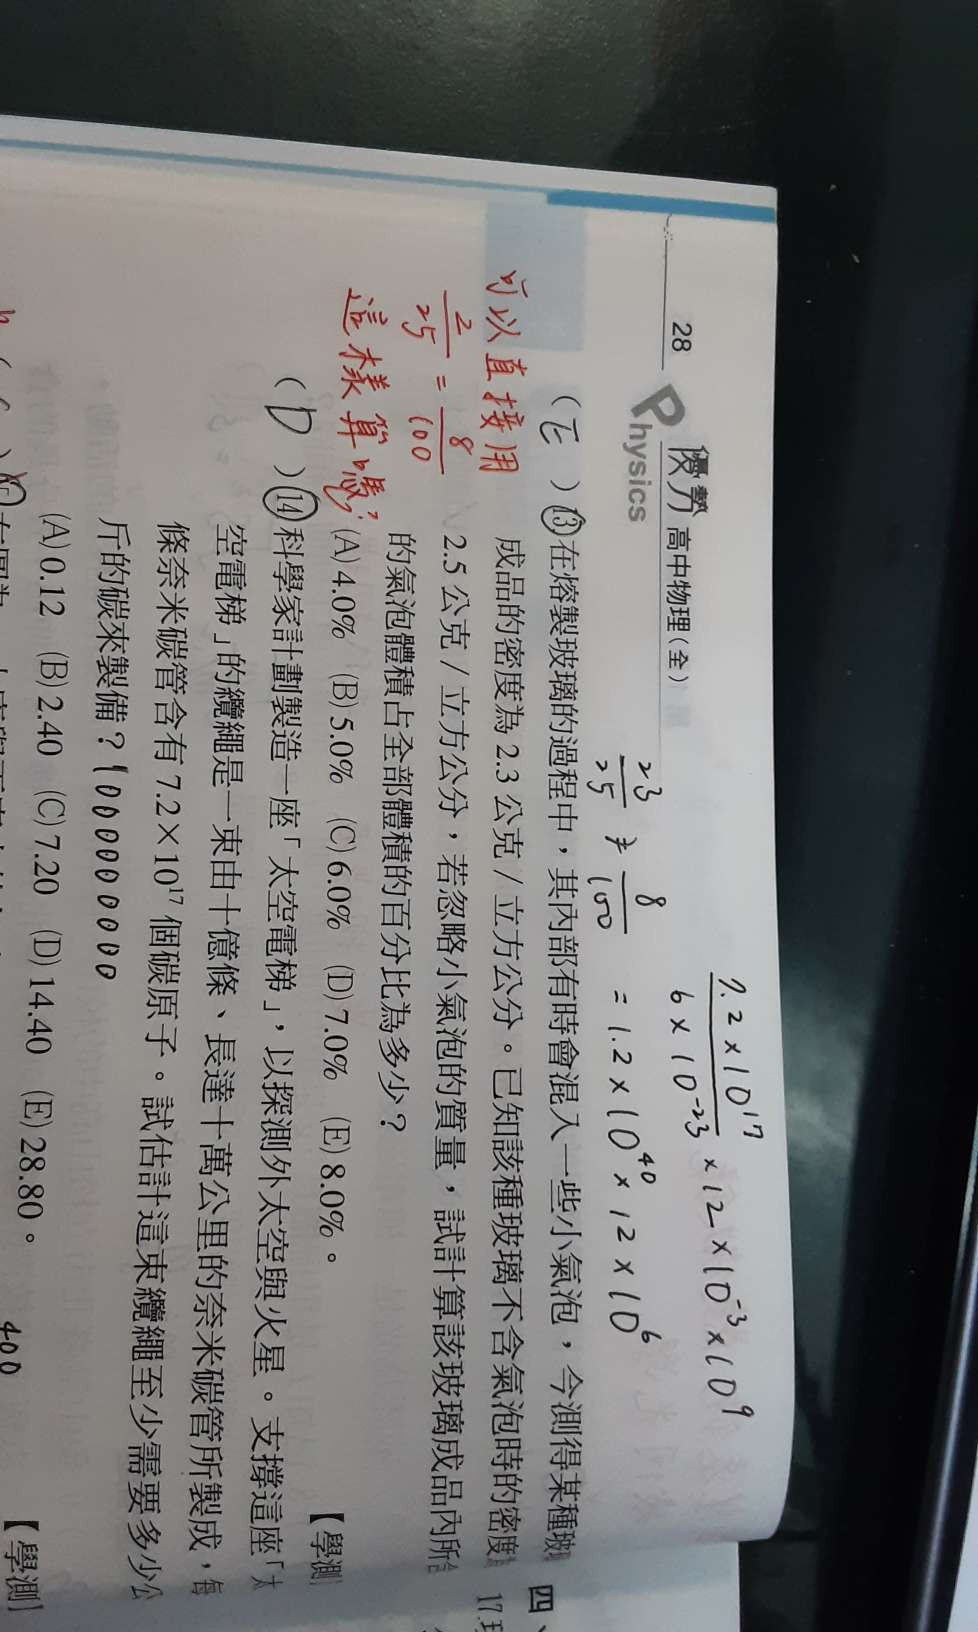 28 優勢 高中物理(全)
Physics
7.2×10¹⁷
6×10⁻²³ ×12×10⁻³×10⁹
23/25 ⇒ 8/100 = 1.2×10⁴⁰×12×10⁶
可以直接用
2/25 = 8/100
這樣算嗎?
(E) 13 在熔製玻璃的過程中,其內部有時會混入一些小氣泡,今測得某種玻
成品的密度為 2.3 公克/立方公分。已知該種玻璃不含氣泡時的密度
2.5 公克/立方公分,若忽略小氣泡的質量,試計算該玻璃成品內所
的氣泡體積占全部體積的百分比為多少?
(A) 4.0% (B) 5.0% (C) 6.0% (D) 7.0% (E) 8.0%。
【學測
(D) 14 科學家計劃製造一座「太空電梯」,以探測外太空與火星。支撐這座「太
空電梯」的纜繩是一束由十億條、長達十萬公里的奈米碳管所製成,每
條奈米碳管含有 7.2×10¹⁷ 個碳原子。試估計這束纜繩至少需要多少公
斤的碳來製備? 1000000000
(A) 0.12 (B) 2.40 (C) 7.20 (D) 14.40 (E) 28.80。
【學測】
400
四、
17.